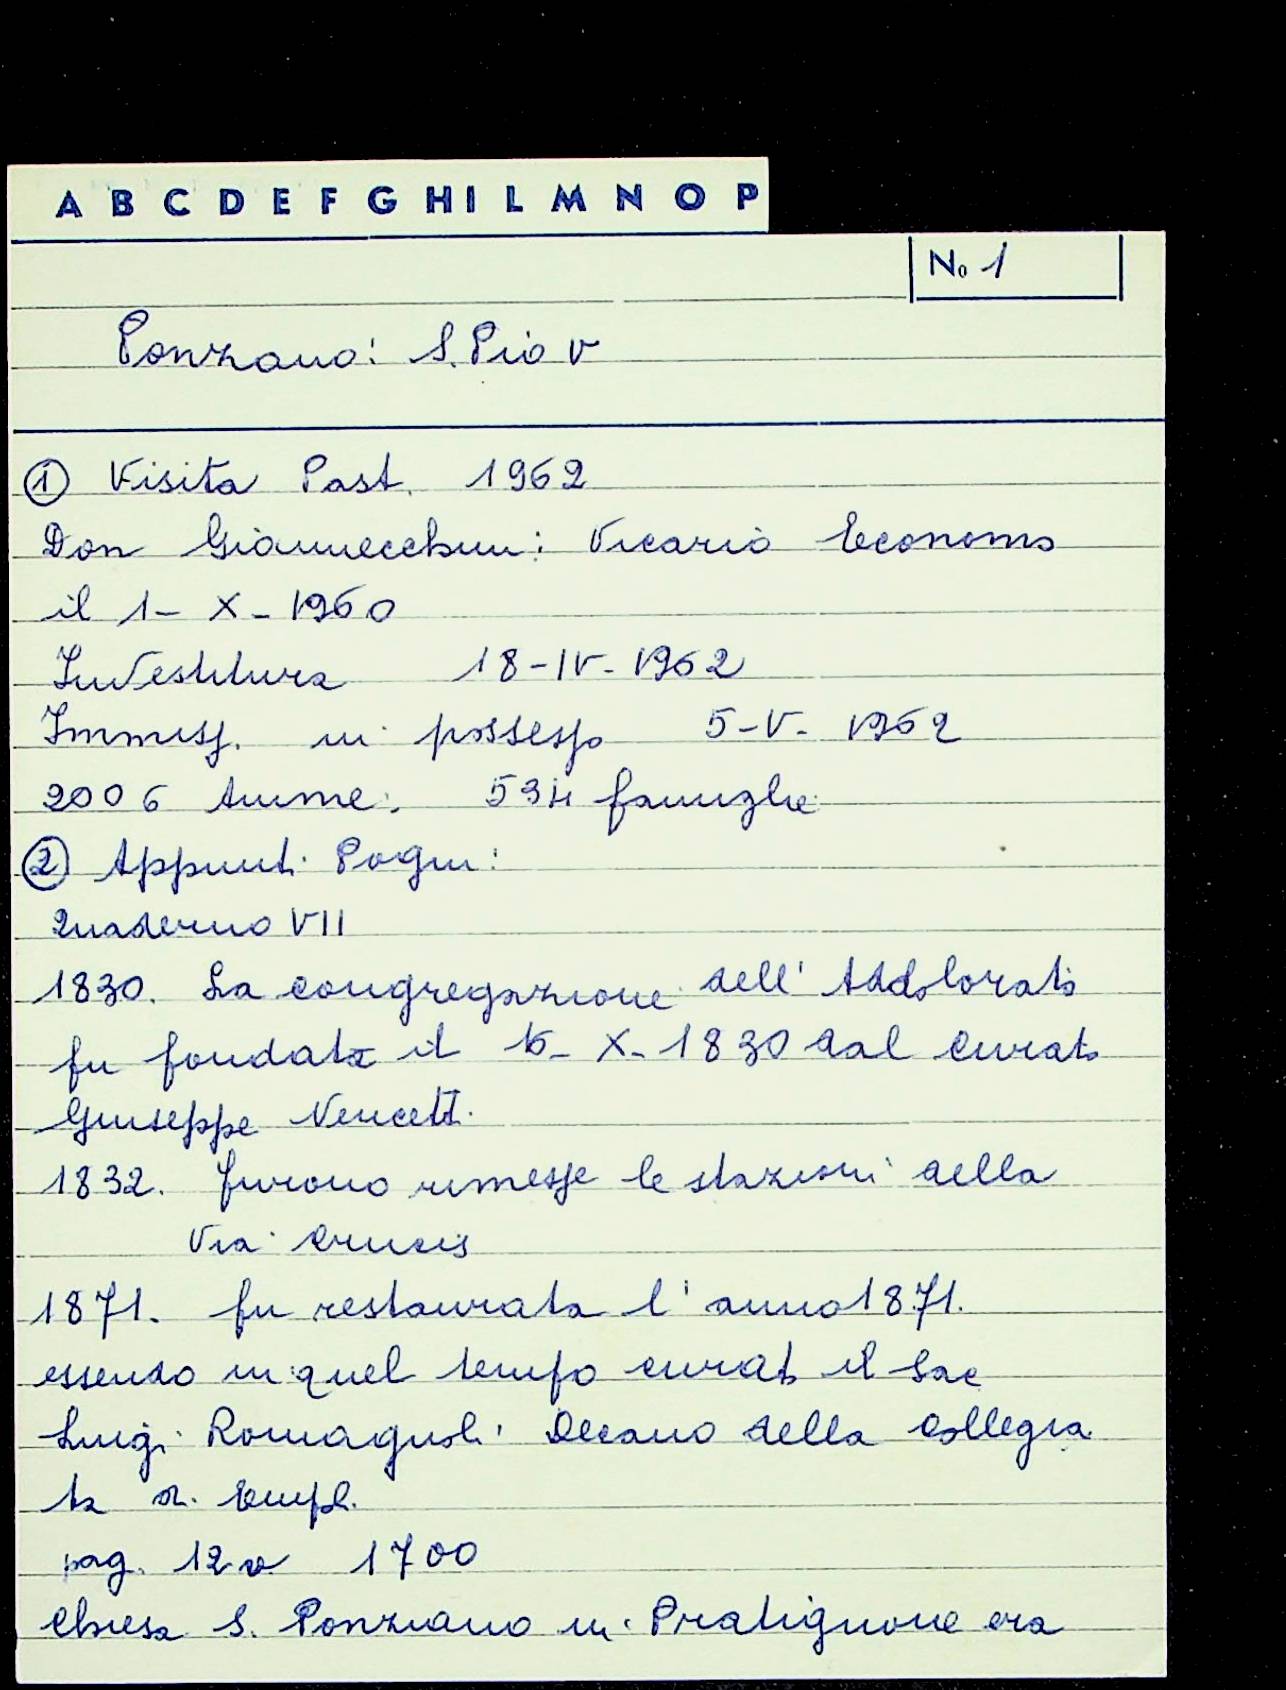 A B C D E F G H I L M N O P
No 1
Ponzano: S. Pio V
① Visita Past. 1962
Don Giannecchini: Vicario Economo
il 1- X- 1960
Investitura 18-IV-1962
Immiss. in possesso 5-V- 1962
2006 Anime. 534 famiglie
② Appunti Pogni:
Quaderno VII
1830. La congregazione dell'Addolorata
fu fondata il 16- X- 1830 dal Curato
Giuseppe Nencetti.
1832. furono rimesse le stazioni della
Via Crucis
1871. fu restaurata l'anno 1871.
essendo in quel tempo curato il Sac
Luigi Romagnoli Decano della Collegia
ta di Empl.
pag. 12v 1700
Chiesa S. Ponziano in Pratignone era